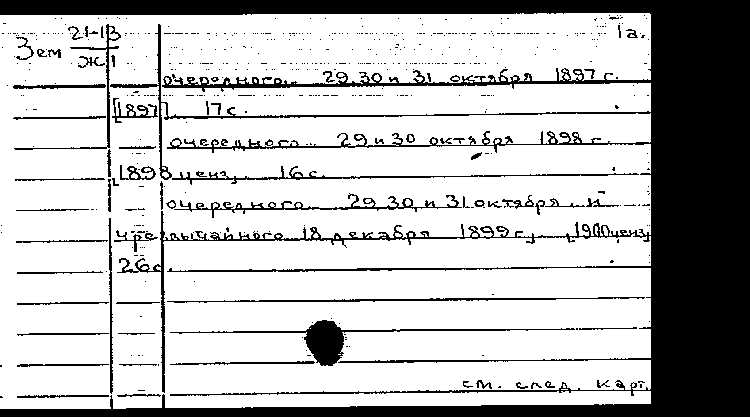 Зем 21-13 1а.
Ж1
очередного 29, 30 и 31 октября 1897 г.
[1897]. 17 с.
очередного 29 и 30 октября 1898 г.
[1898 ценз, 16 с.
очередного 29, 30, и 31 октября и
чрезвычайного 18 декабря 1899 г., [1900 ценз,
26 с.
см. след. карт.